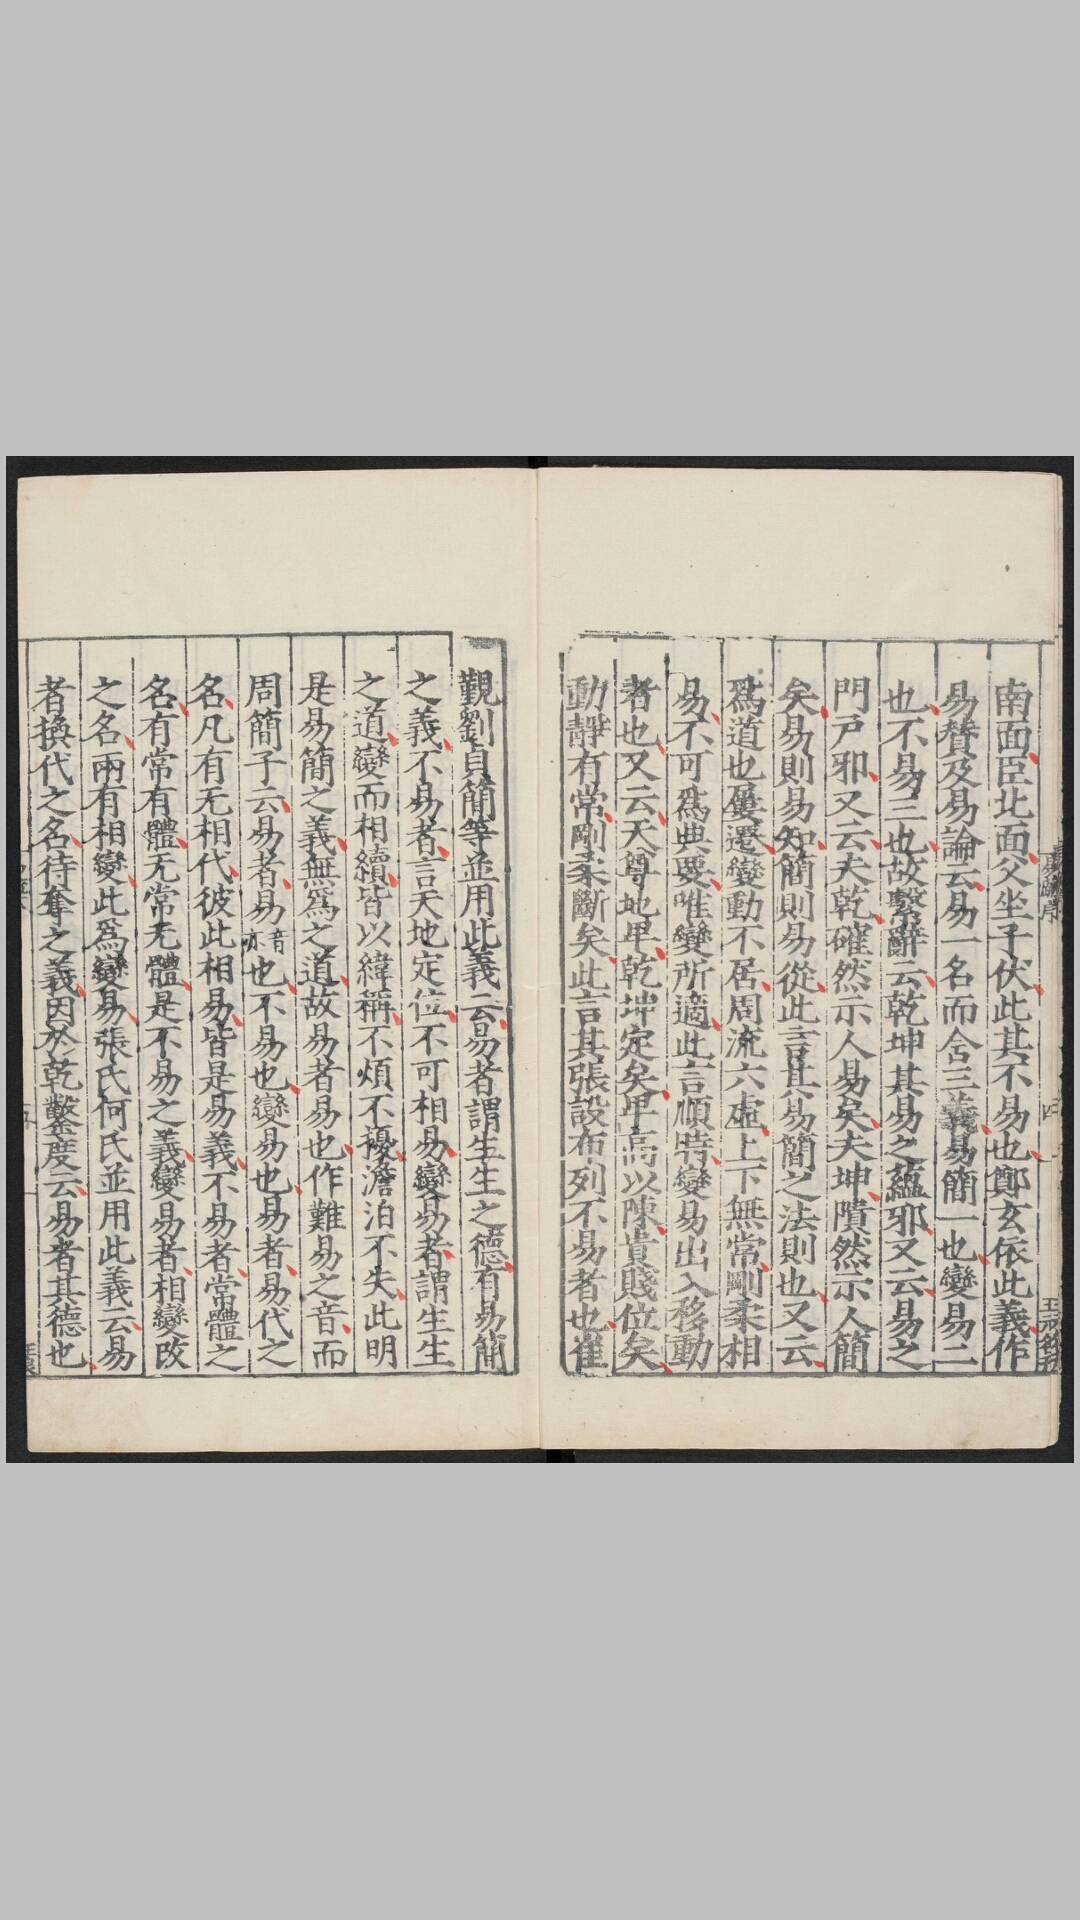 南面臣北面父坐子伏此其不易也鄭玄依此義作
易賛及易論云易一名而含三義易簡一也變易二
也不易三也故繫辭云乾坤其易之蘊邪又云易之
門戸邪又云夫乾確然示人易矣夫坤隤然示人簡
矣易則易知簡則易從此言其易簡之法則也又云
爲道也屢遷變動不居周流六虛上下無常剛柔相
易不可爲典要唯變所適此言順時變易出入移動
者也又云天尊地卑乾坤定矣卑高以陳貴賤位矣
動靜有常剛柔斷矣此言其張設布列不易者也崔
觀劉貞簡等並用此義云易者謂生生之德有易簡
之義不易者言天地定位不可相易變易者謂生生
之道變而相續皆以緯稱不煩不擾澹泊不失此明
是易簡之義無爲之道故易者易也作難易之音而
周簡子云易者易音亦也不易也變易也易者易代之
名凡有无相代彼此相易皆是易義不易者常體之
名有常有體无常无體是不易之義變易者相變改
之名兩有相變此爲變易張氏何氏並用此義云易
者換代之名待奪之義因於乾鑿度云易者其德也